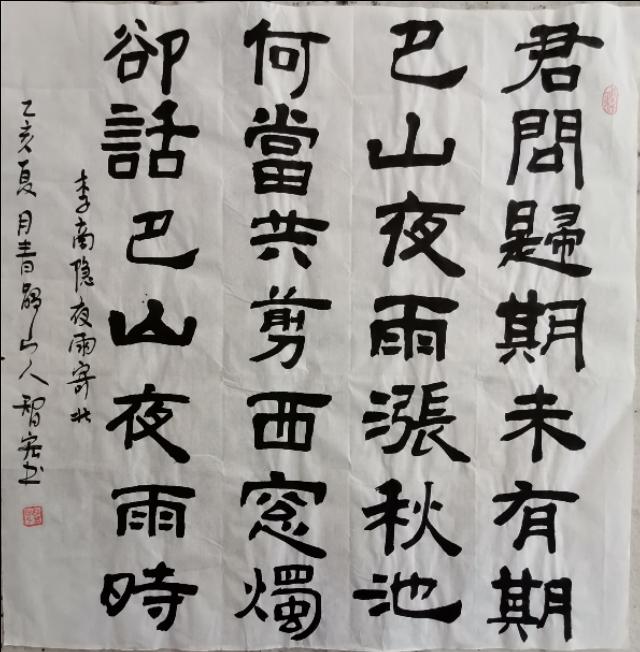 君問歸期未有期
巴山夜雨漲秋池
何當共剪西窓燭
卻話巴山夜雨時
李商隐夜雨寄北
乙亥夏月青 山人智 书